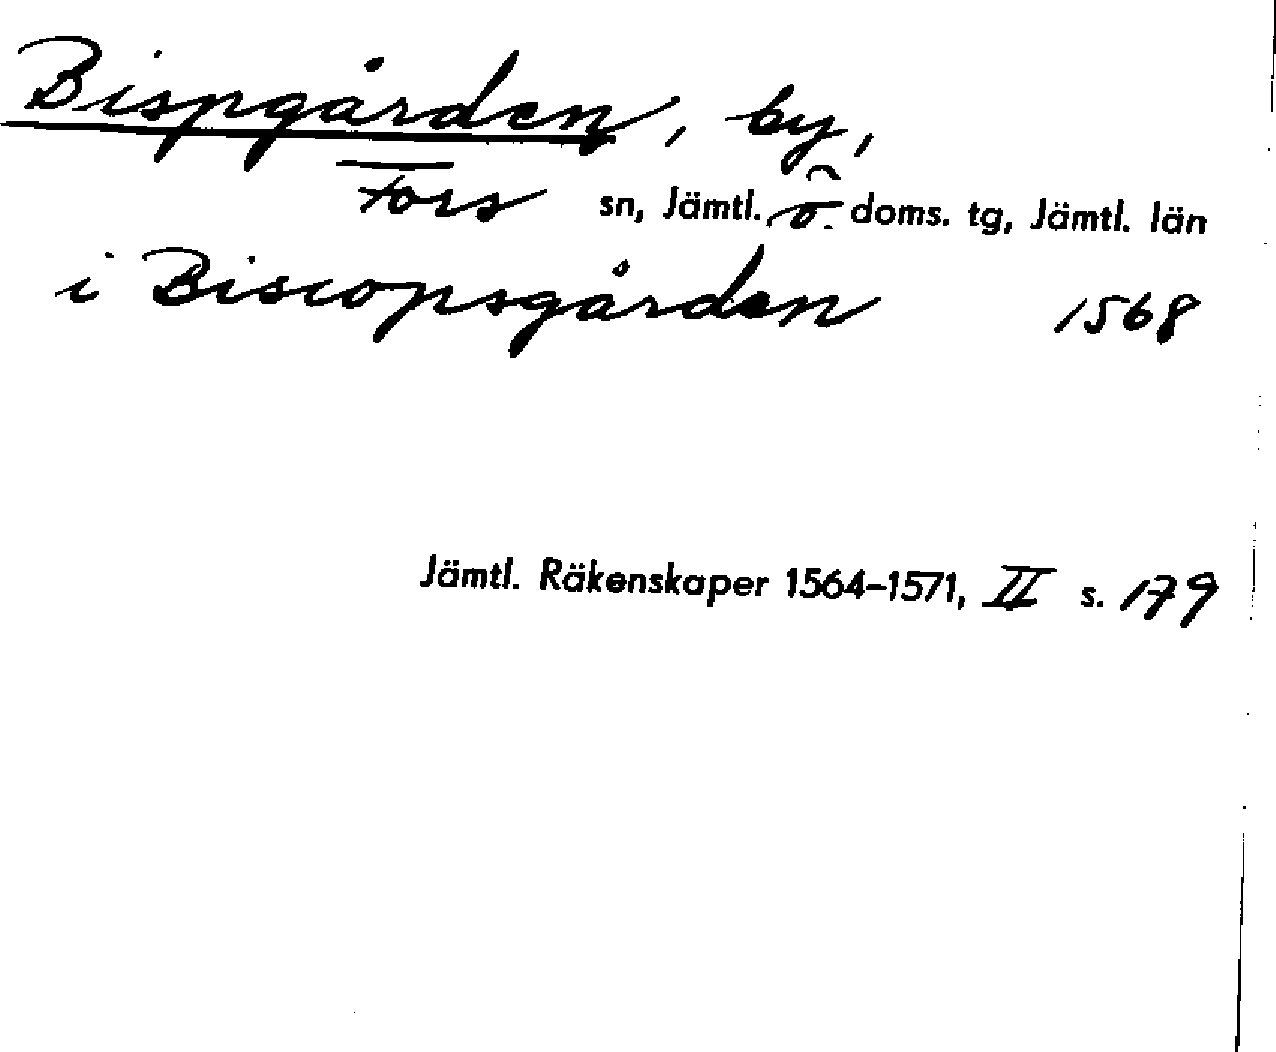 Bispgården, by,
Fors sn, Jämtl. ö. doms. tg, Jämtl. län
i Biscopsgården 1568
Jämtl. Räkenskaper 1564-1571, II s. 179